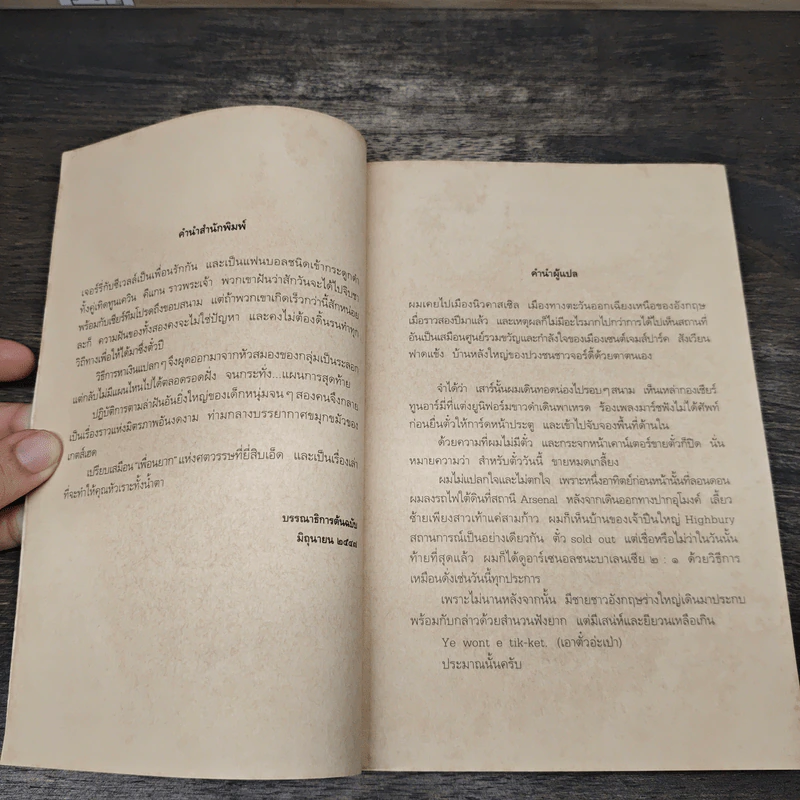 คำนำสำนักพิมพ์
เจอร์รี่กับซีเวลล์เป็นเพื่อนรักกัน และเป็นแฟนบอลชนิดเข้ากระดูกดำ
ทั้งคู่เทิดทูนเควิน คีแกน ราวพระเจ้า พวกเขาฝันว่าสักวันจะได้ไปจิบชา
พร้อมกับเชียร์ทีมโปรดถึงขอบสนาม แต่ถ้าพวกเขาเกิดเร็วกว่านี้สักหน่อย
ละก็ ความฝันของทั้งสองคงจะไม่ใช่ปัญหา และคงไม่ต้องดิ้นรนทำทุก
วิถีทางเพื่อให้ได้มาซึ่งตั๋วปี
วิธีการหาเงินแปลกๆ จึงผุดออกมาจากหัวสมองของกลุ่มเป็นระลอก
แต่กลับไม่มีแผนไหนไปได้ตลอดรอดฝั่ง จนกระทั่ง...แผนการสุดท้าย
ปฏิบัติการตามล่าฝันอันยิ่งใหญ่ของเด็กหนุ่มจนๆ สองคนจึงกลาย
เป็นเรื่องราวแห่งมิตรภาพอันงดงาม ท่ามกลางบรรยากาศขมุกขมัวของ
เกตส์เฮด
เปรียบเสมือน "เพื่อนยาก" แห่งศตวรรษที่ยี่สิบเอ็ด และเป็นเรื่องเล่า
ที่จะทำให้คุณหัวเราะทั้งน้ำตา
บรรณาธิการต้นฉบับ
มิถุนายน ๒๕๔๗
คำนำผู้แปล
ผมเคยไปเมืองนิวคาสเซิล เมืองทางตะวันออกเฉียงเหนือของอังกฤษ
เมื่อราวสองปีมาแล้ว และเหตุผลก็ไม่มีอะไรมากไปกว่าการได้ไปเห็นสถานที่
อันเป็นเสมือนศูนย์รวมขวัญและกำลังใจของเมืองเซนต์เจมส์ปาร์ค สังเวียน
ฟาดแข้ง บ้านหลังใหญ่ของปวงชนชาวจอร์ดี้ด้วยตาตนเอง
จำได้ว่า เสาร์นั้นผมเดินทอดน่องไปรอบๆ สนาม เห็นเหล่ากองเชียร์
ทูนอาร์มี่ที่แต่งยูนิฟอร์มขาวดำเดินพาเหรด ร้องเพลงมาร์ชฟังไม่ได้ศัพท์
ก่อนยื่นตั๋วให้การ์ดหน้าประตู และเข้าไปจับจองพื้นที่ด้านใน
ด้วยความที่ผมไม่มีตั๋ว และกระจกหน้าเคาน์เตอร์ขายตั๋วก็ปิด นั่น
หมายความว่า สำหรับตั๋ววันนี้ ขายหมดเกลี้ยง
ผมไม่แปลกใจและไม่ตกใจ เพราะหนึ่งอาทิตย์ก่อนหน้านั้นที่ลอนดอน
ผมลงรถไฟใต้ดินที่สถานี Arsenal หลังจากเดินออกทางปากอุโมงค์ เลี้ยว
ซ้ายเพียงสาวเท้าแค่สามก้าว ผมก็เห็นบ้านของเจ้าปืนใหญ่ Highbury
สถานการณ์เป็นอย่างเดียวกัน ตั๋ว sold out แต่เชื่อหรือไม่ว่าในวันนั้น
ท้ายที่สุดแล้ว ผมก็ได้ดูอาร์เซนอลชนะบาเลนเซีย ๒ : ๑ ด้วยวิธีการ
เหมือนดั่งเช่นวันนี้ทุกประการ
เพราะไม่นานหลังจากนั้น มีชายชาวอังกฤษร่างใหญ่เดินมาประกบ
พร้อมกับกล่าวด้วยสำนวนฟังยาก แต่มีเสน่ห์และยียวนเหลือเกิน
Ye wont e tik-ket. (เอาตั๋วอ่ะเปล่า)
ประมาณนั้นครับ